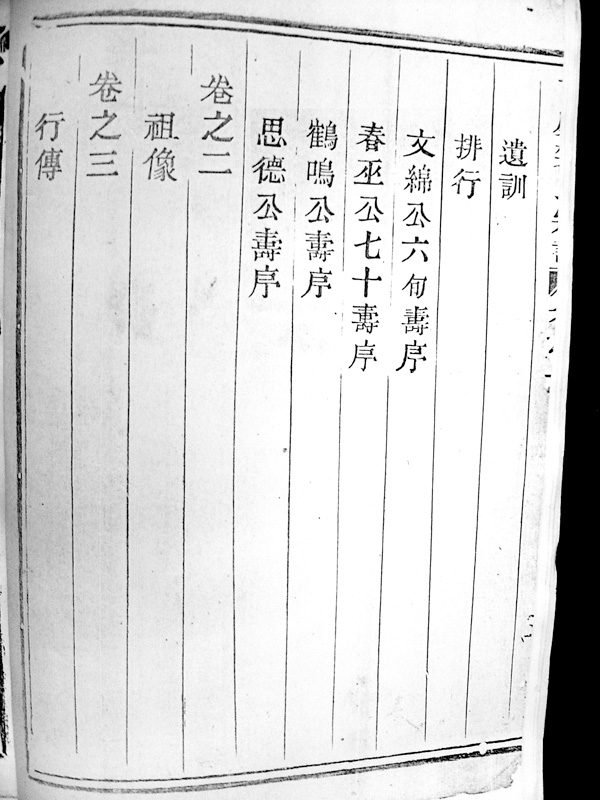 遺訓
排行
文綿公六旬壽序
春巫公七十壽序
鶴鳴公壽序
思德公壽序
卷之二
祖像
卷之三
行傳